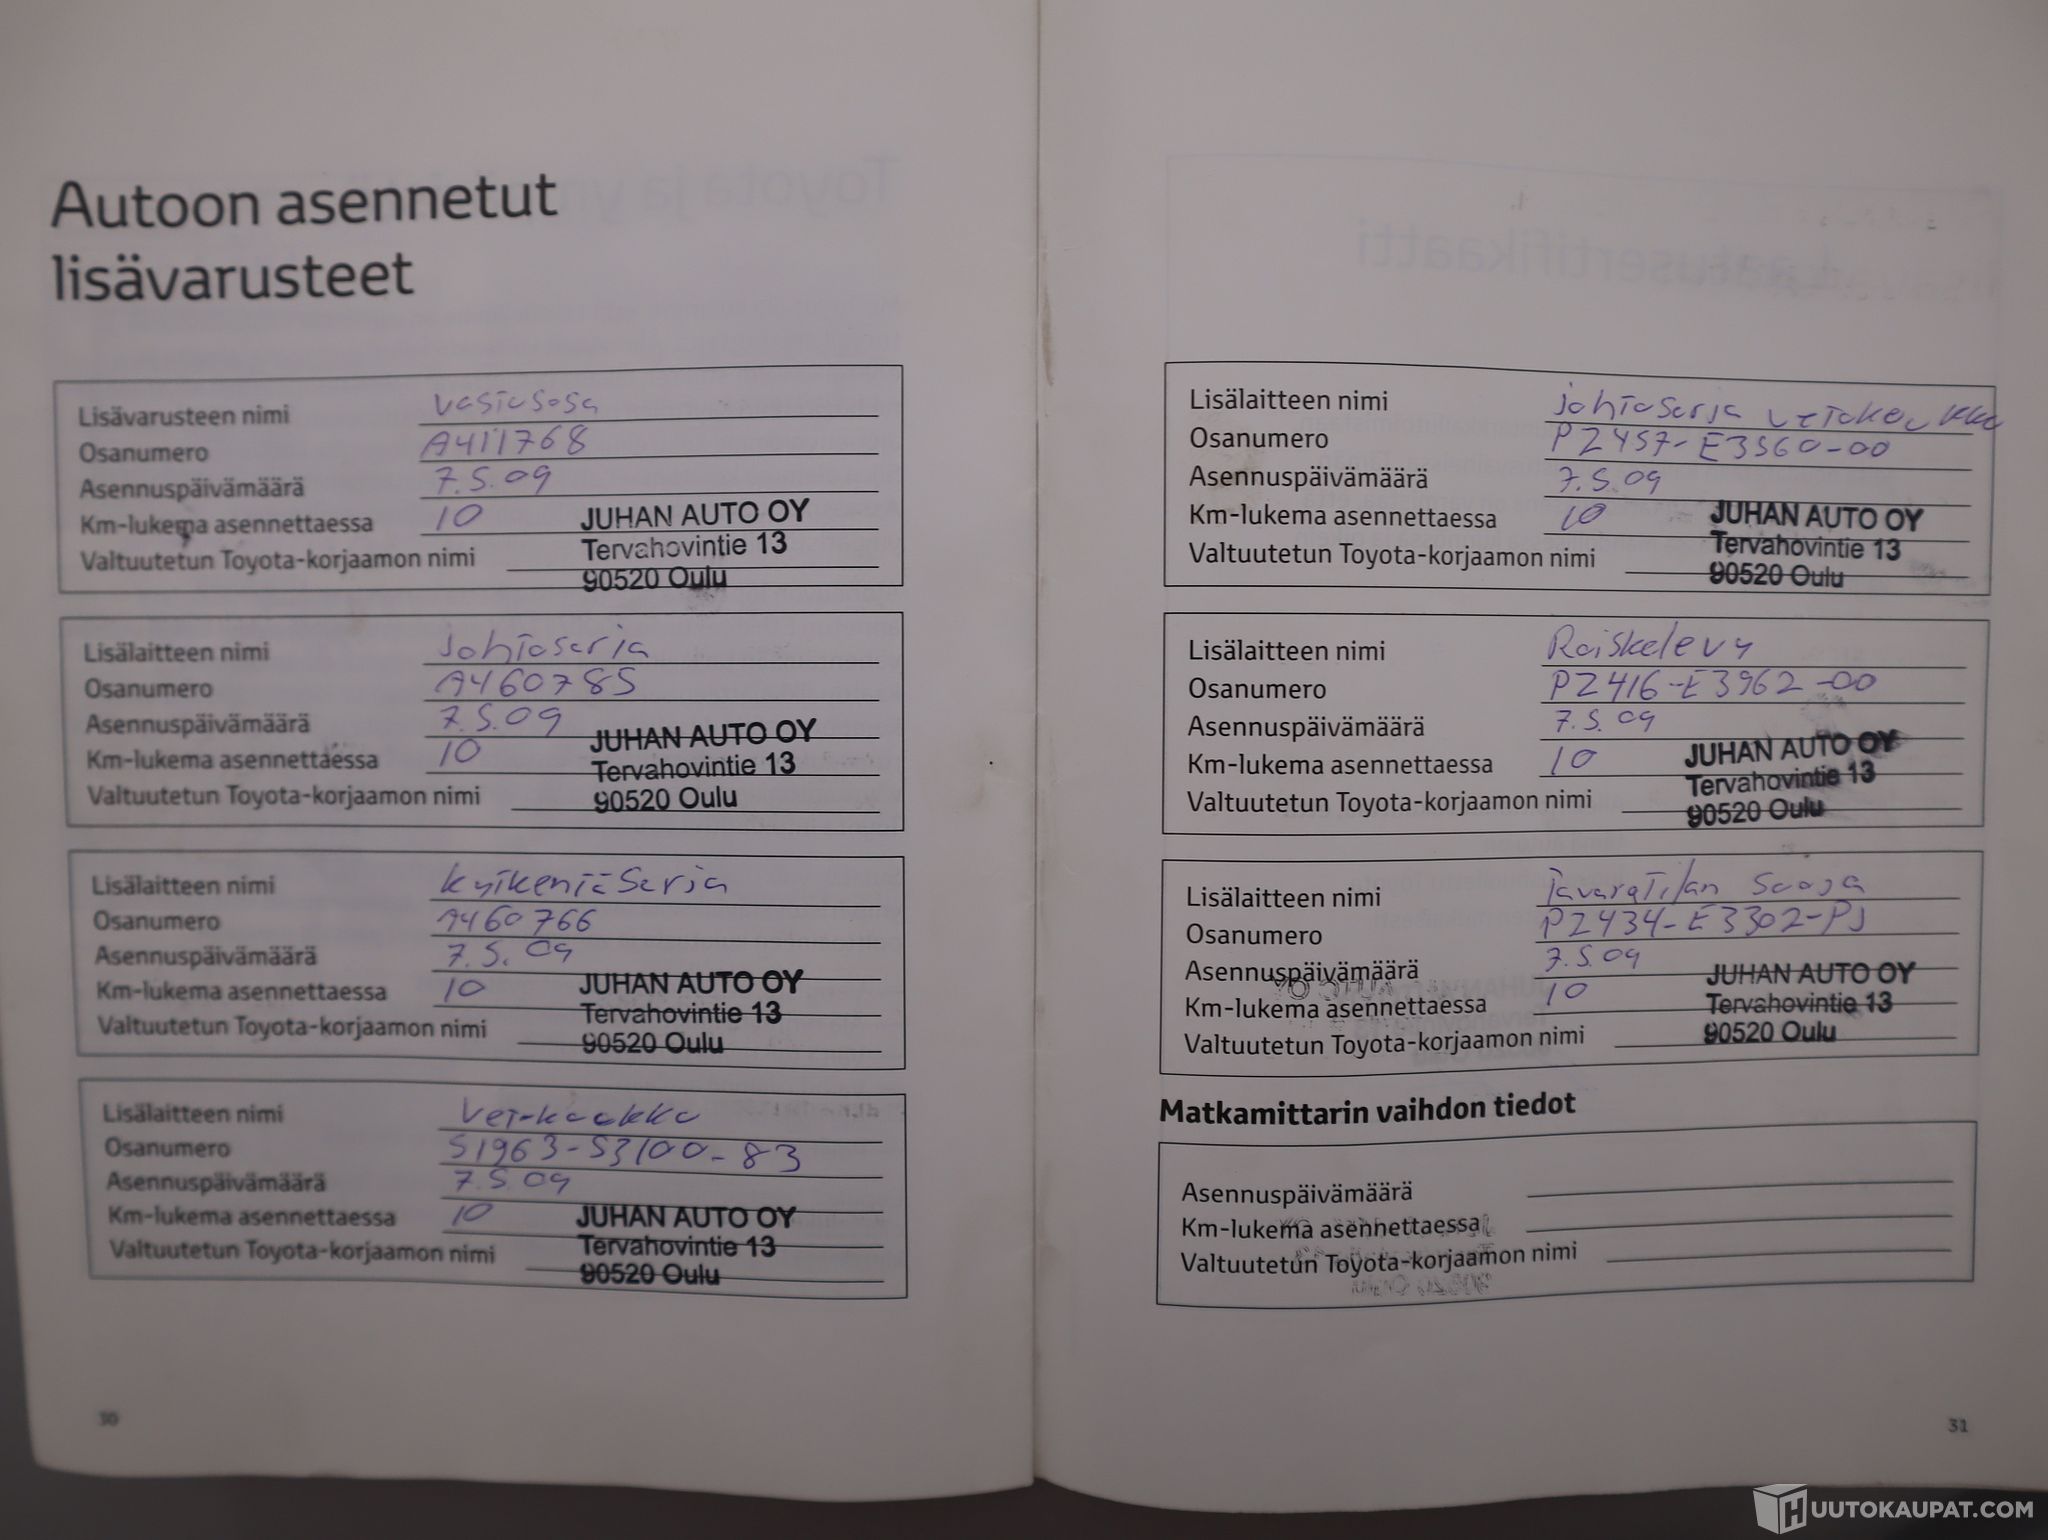 Autoon asennetut
lisävarusteet
Lisävarusteen nimi vastusosa
Osanumero A411768
Asennuspäivämäärä 7.5.09
Km-lukema asennettaessa 10 JUHAN AUTO OY
Tervahovintie 13
Valtuutetun Toyota-korjaamon nimi
90520 Oulu
Lisälaitteen nimi Johtosarja
Osanumero A460785
Asennuspäivämäärä 7.5.09
JUHAN AUTO OY
Km-lukema asennettaessa 10
Tervahovintie 13
Valtuutetun Toyota-korjaamon nimi 90520 Oulu
Lisälaitteen nimi kytkentäsarja
Osanumero A460766
Asennuspäivämäärä 7.5.09
Km-lukema asennettaessa 10 JUHAN AUTO OY
Tervahovintie 13
Valtuutetun Toyota-korjaamon nimi 90520 Oulu
Lisälaitteen nimi Vetokoukku
Osanumero S1963-53100-83
Asennuspäivämäärä 7.5.09
Km-lukema asennettaessa 10 JUHAN AUTO OY
Valtuutetun Toyota-korjaamon nimi Tervahovintie 13
90520 Oulu
30
Lisälaitteen nimi johtosarja vetokoukku
Osanumero PZ457-E3560-00
Asennuspäivämäärä 7.5.09
Km-lukema asennettaessa 10 JUHAN AUTO OY
Tervahovintie 13
Valtuutetun Toyota-korjaamon nimi 90520 Oulu
Lisälaitteen nimi Roiskelevy
Osanumero PZ416-E3962-00
Asennuspäivämäärä 7.5.09
Km-lukema asennettaessa 10 JUHAN AUTO OY
Tervahovintie 13
Valtuutetun Toyota-korjaamon nimi 90520 Oulu
Lisälaitteen nimi Tavaratilan Suoja
Osanumero PZ434-E3302-PJ
Asennuspäivämäärä 7.5.09
Km-lukema asennettaessa 10 JUHAN AUTO OY
Tervahovintie 13
Valtuutetun Toyota-korjaamon nimi 90520 Oulu
Matkamittarin vaihdon tiedot
Asennuspäivämäärä
Km-lukema asennettaessa
Valtuutetun Toyota-korjaamon nimi
31
HUUTOKAUPAT.COM